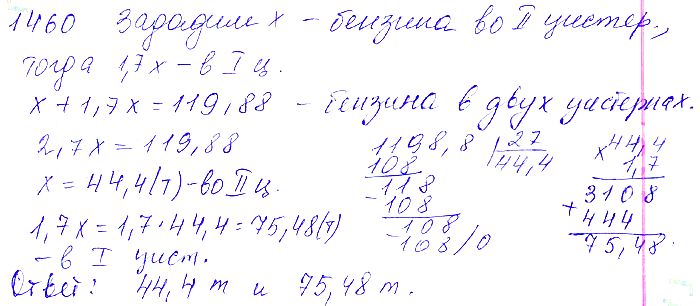 1460 Зададим х - бензина во II цистер.,
тогда 1,7х - в I ц.
х + 1,7х = 119,88 - бензина в двух цистернах.
2,7х = 119,88
х = 44,4(т) - во II ц.
1,7х = 1,7·44,4 = 75,48(т)
- в I цист.
1198,8 | 27
108 44,4
118
-108
108
-108/0
44,4
х 1,7
3108
+ 444
75,48.
Ответ: 44,4 т и 75,48 т.